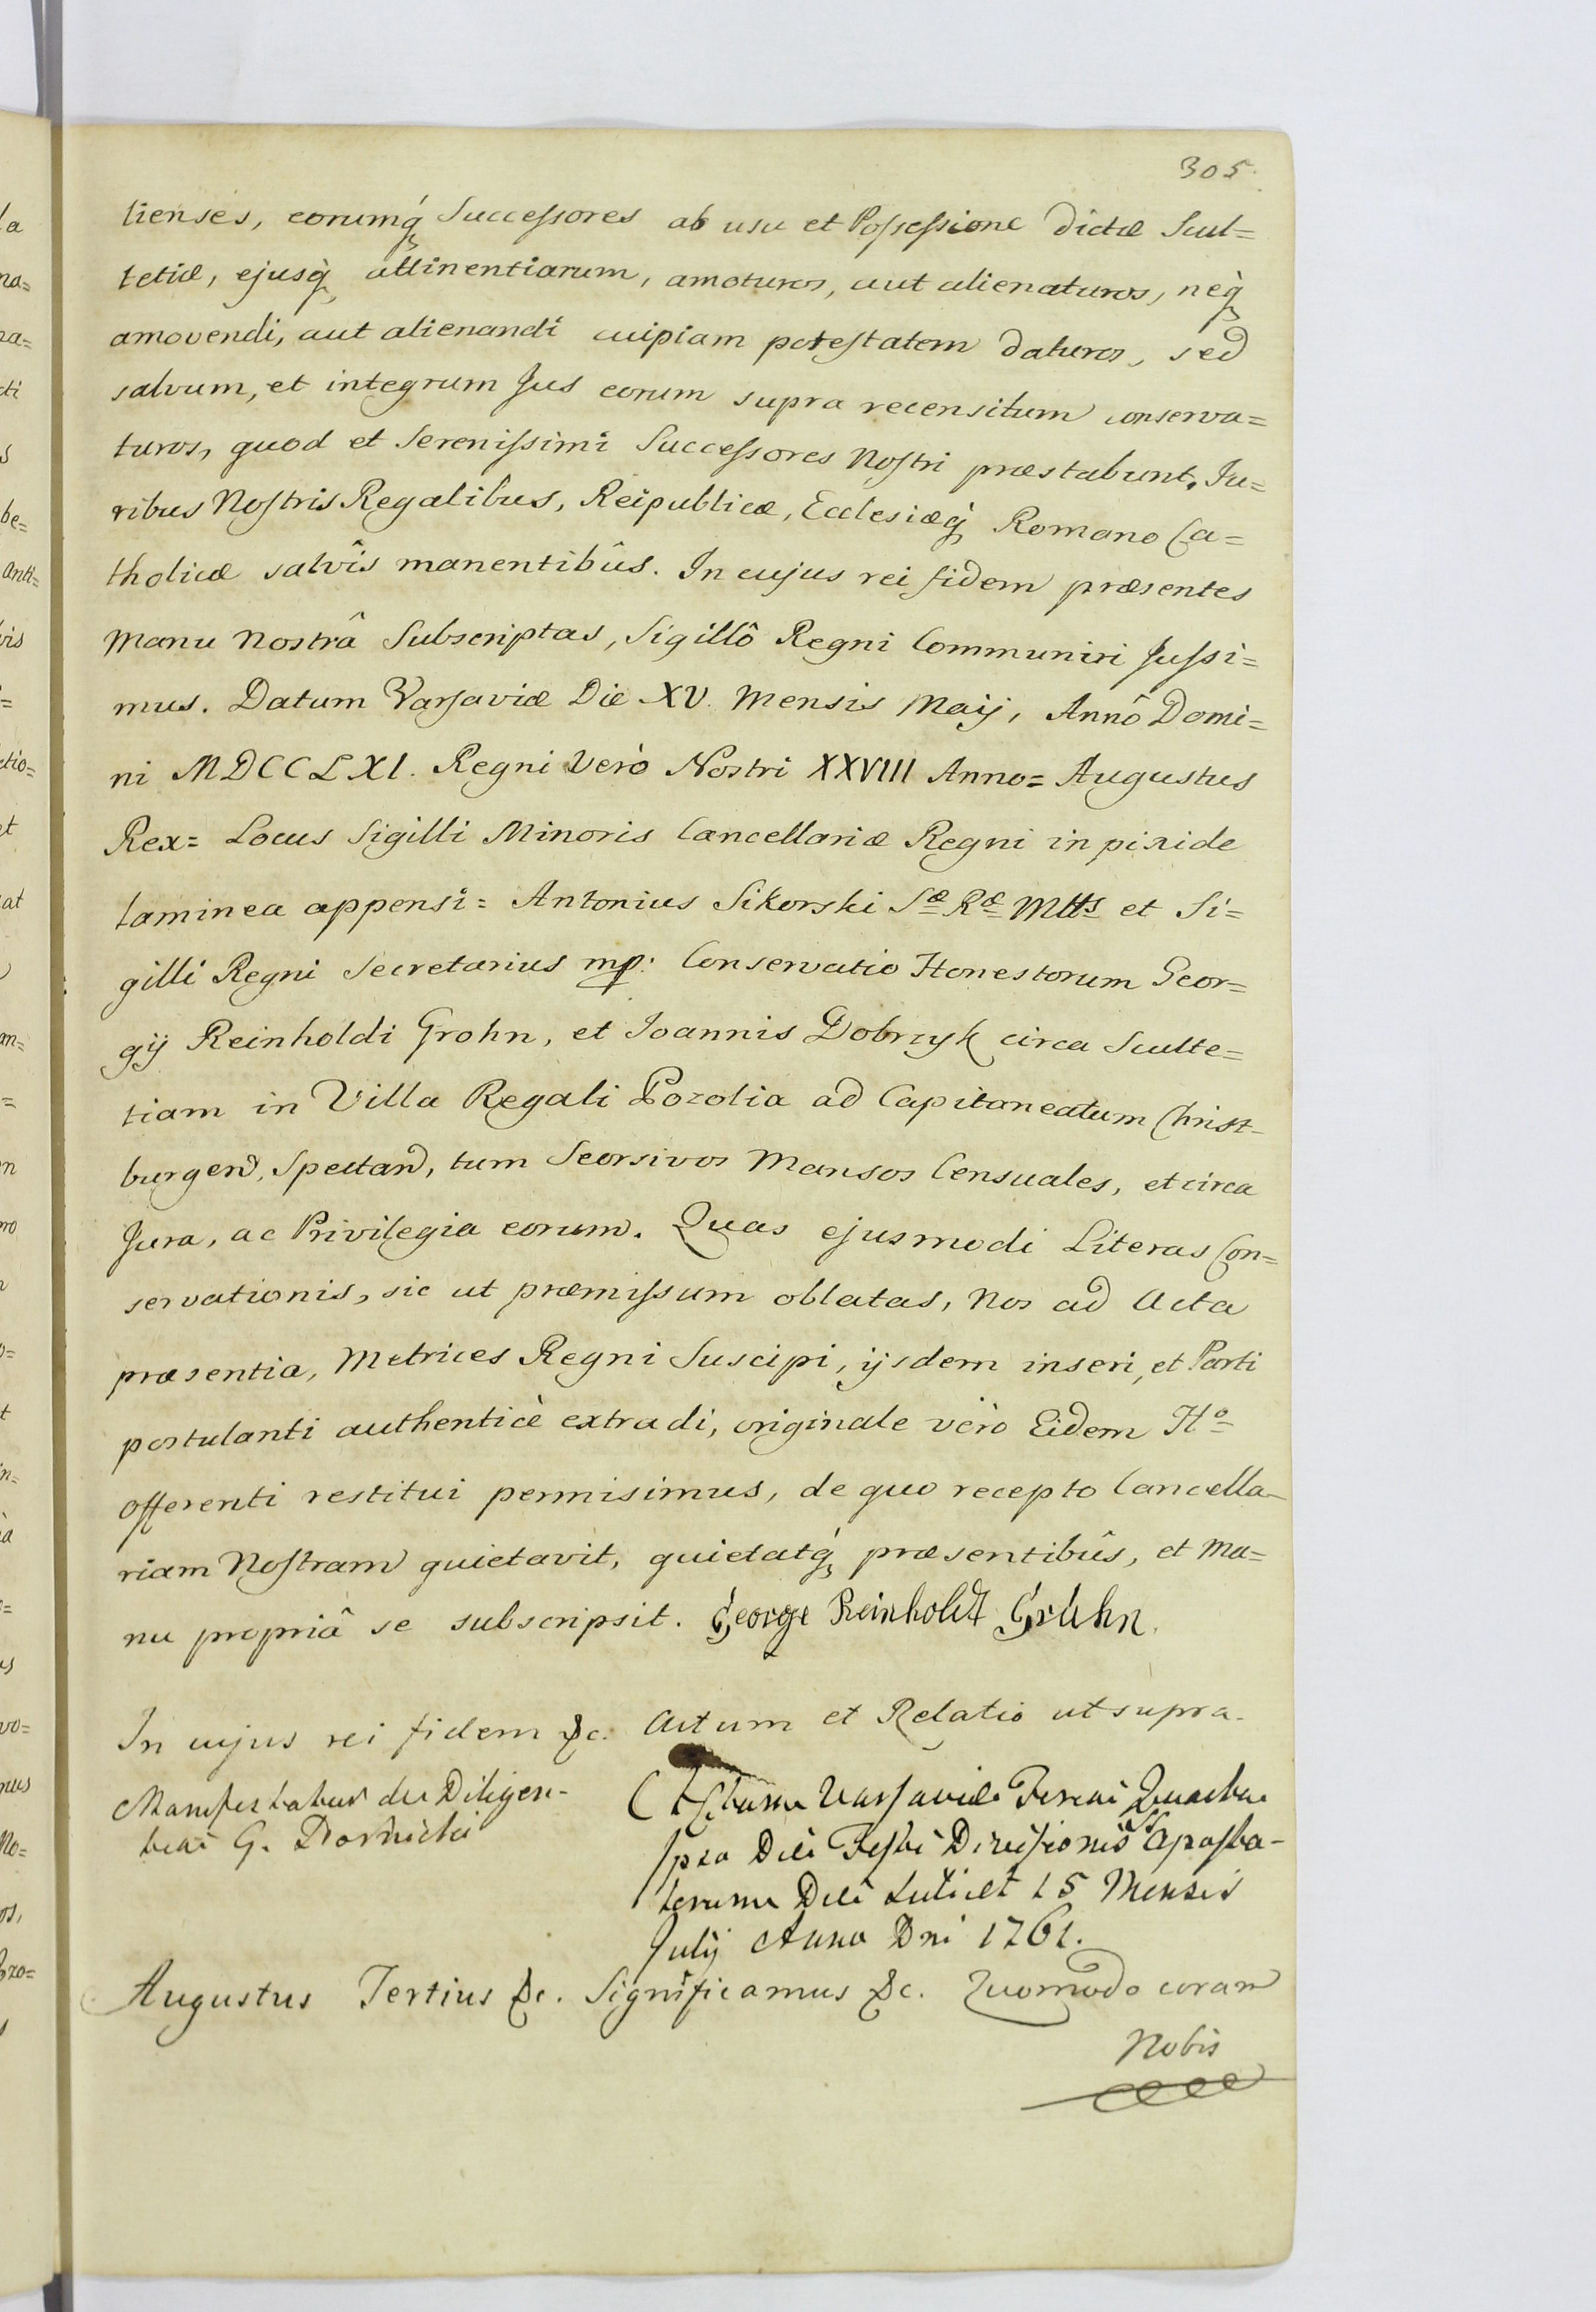 305.
lienses, eorumq́ Successores ab usu et Possessione dictæ Scul=
tetiæ, ejusq́ attinentiarum, amoturos, aut alienaturos, neq́
amovendi, aut alienandi cuipiam potestatem daturos, sed
salvum, et integrum Jus eorum supra recensitum conserva=
turos, quod et Serenissimi Successores Nostri præstabunt. Ju=
ribus Nostris Regalibus, Reipublicæ, Ecclesiæq́ Romano Ca=
tholicæ salvîs manentibûs. In cujus rei fidem præsentes
Manu Nostrâ Subscriptas, Sigillô Regni Communiri Jussi=
mus. Datum Varsaviæ Die XV. Mensis Maij, Annô Domi=
ni MDCCLXI. Regni verò Nostri XXVIII Anno= Augustus
Rex= Locus Sigilli Minoris Cancellariæ Regni in pixide
laminea appensi= Antonius Sikorski Sæ Ræ Mtts et Si=
gilli Regni Secretarius mp: Conservatio Honestorum Geor=
gij Reinholdi Grohn, et Joannis Dobrzyk circa Sculte=
tiam in Villa Regali Pozolia ad Capitaneatum Christ-
burgen, Spectan, tum Seorsivos Mansos Censuales, et circa
Jura, ac Privilegia eorum. Quas ejusmodi Literas Con=
servationis, sic ut præmissum oblatas, Nos ad Acta
præsentia, Metrices Regni Suscipi, ijsdem inseri, et Parti
postulanti authenticè extradi, originale vero Eidem Ho
offerenti restitui permisimus, de quo recepto Cancella-
riam Nostram quietavit, quietatq́ præsentibûs, et Ma=
nu propriâ se subscripsit. George Reinholdt Gruhn.
In cujus rei fidem &c. Actum et Relatio ut supra.
Manifestatur de Diligen-
tiai G.
Actum Varsaviæ Feria Quarta
ipso Die Festi Divisionis Aposto-
lorum Die scilicet 15 Mensis
Julij Anno Dni 1761.
Augustus Tertius &c. Significamus &c. Quomodo coram
Nobis